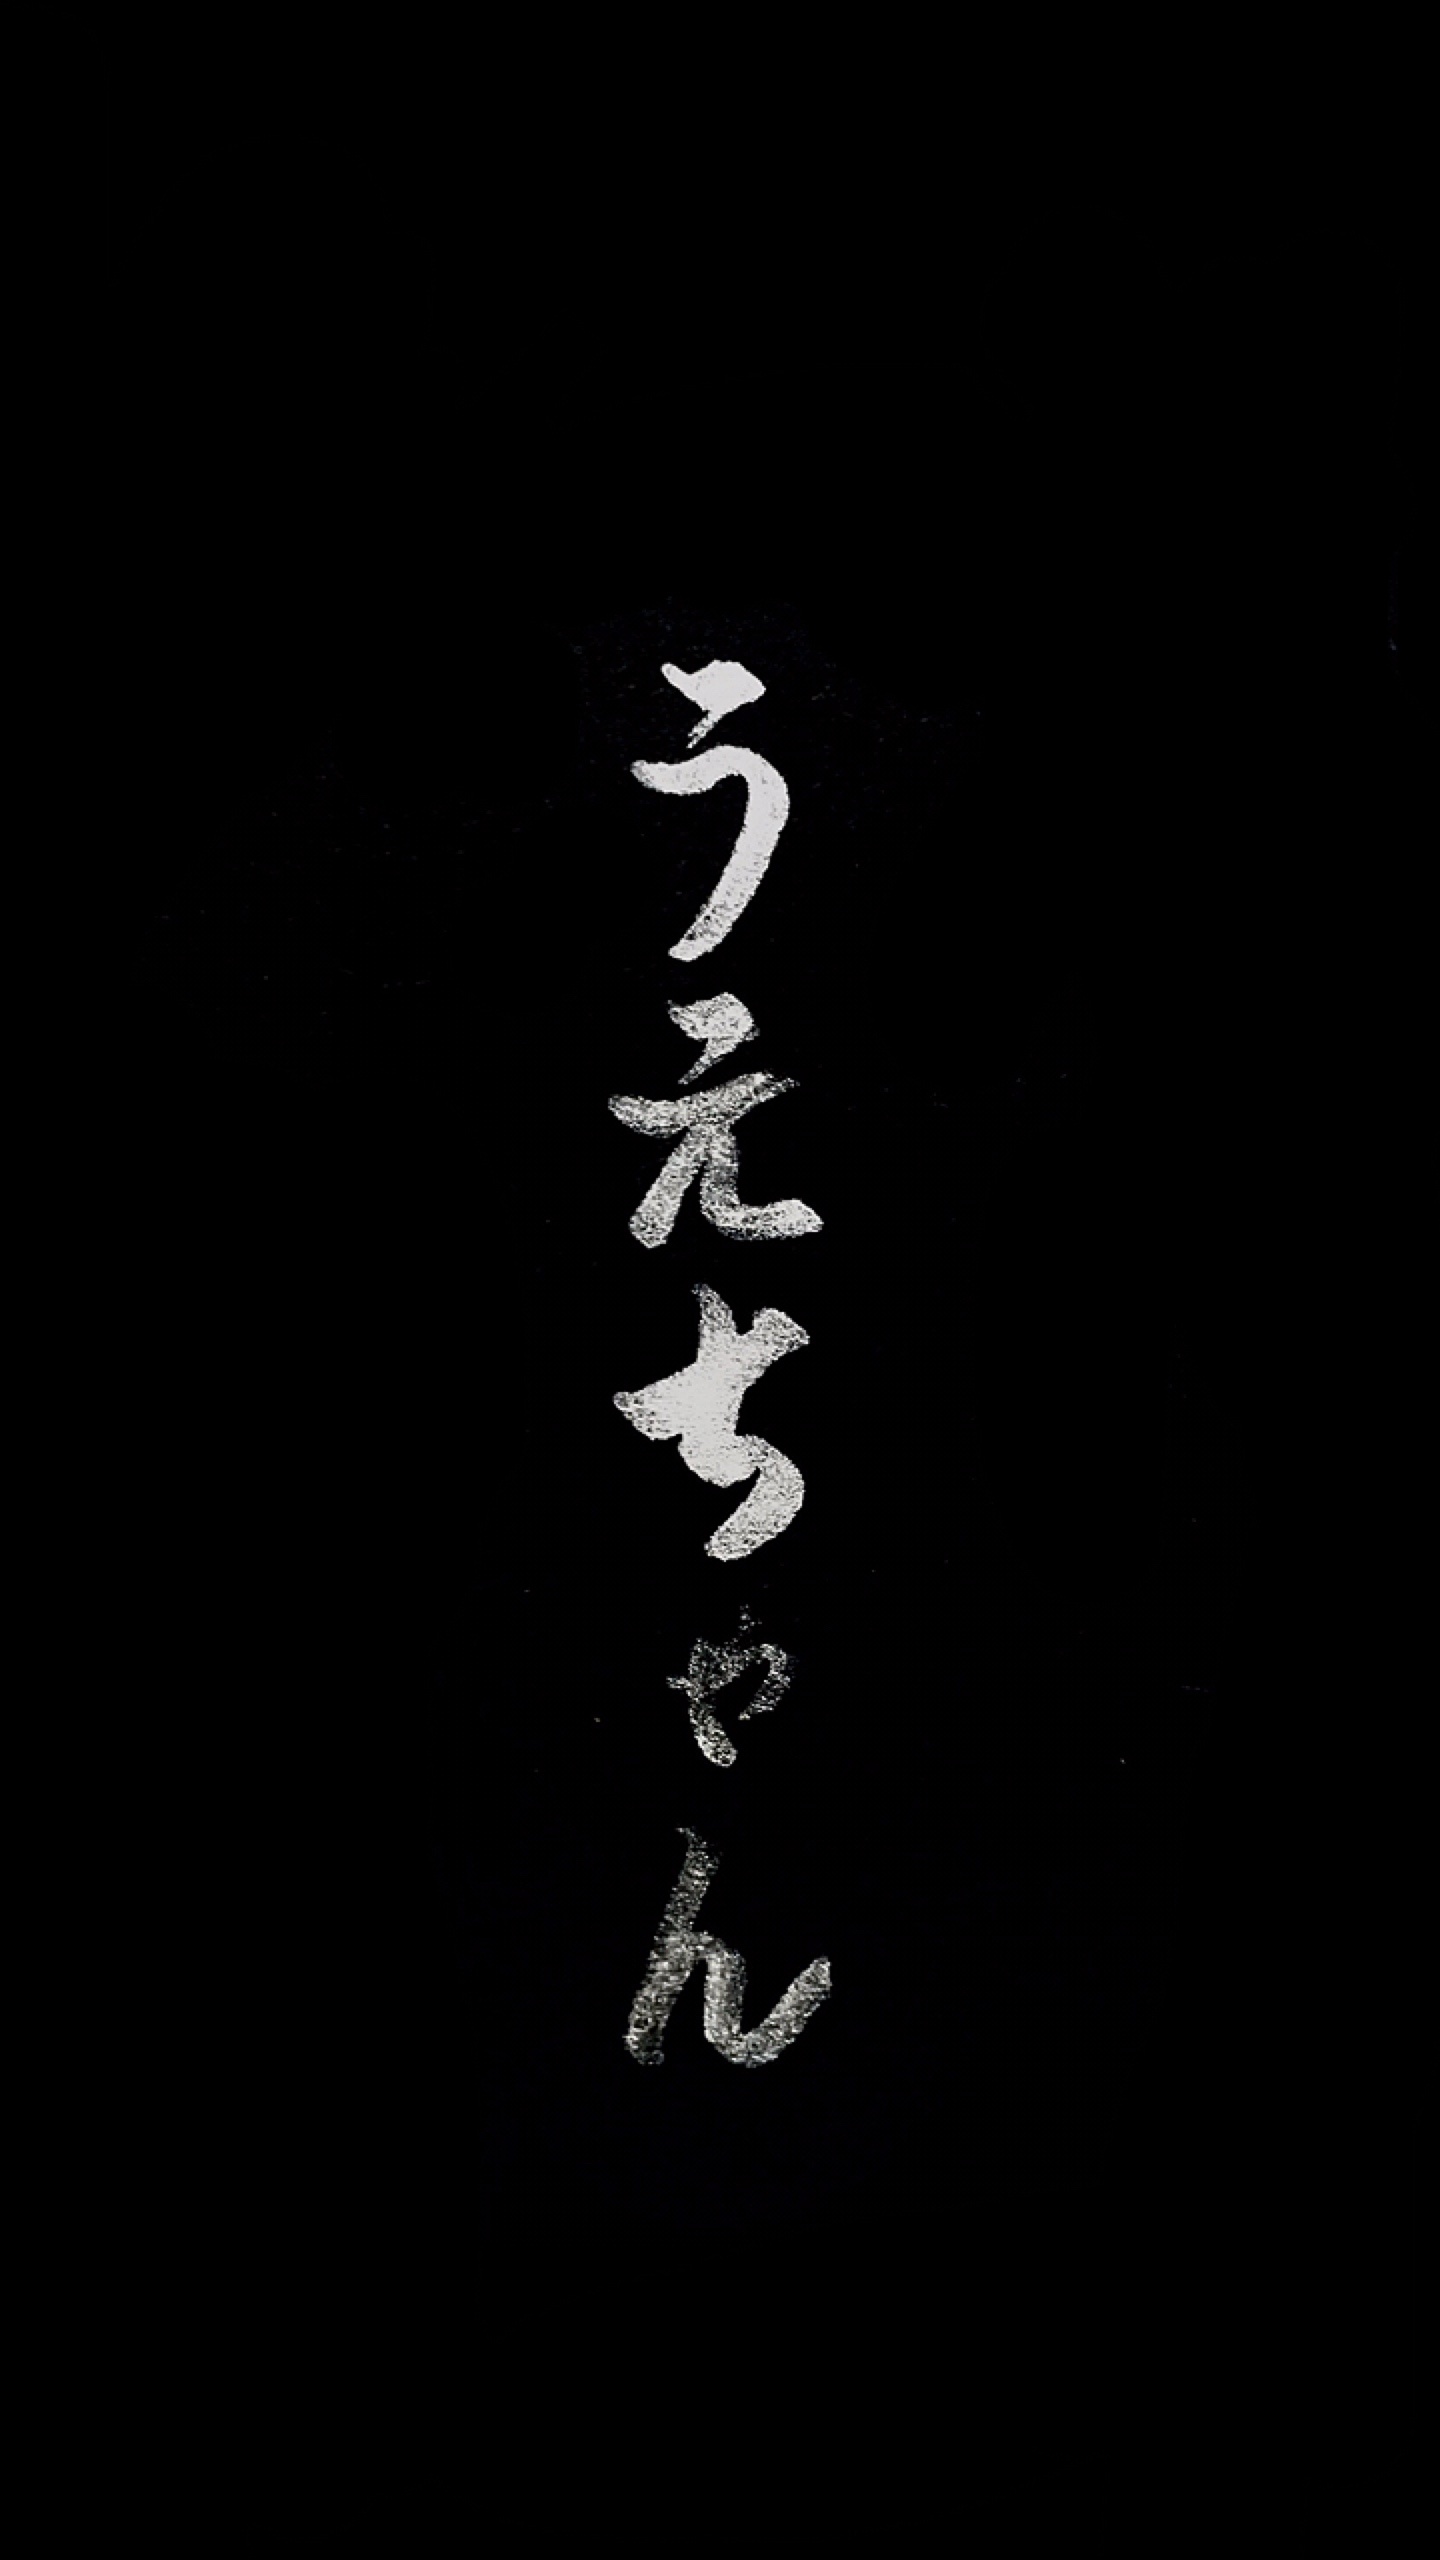 うえちゃん